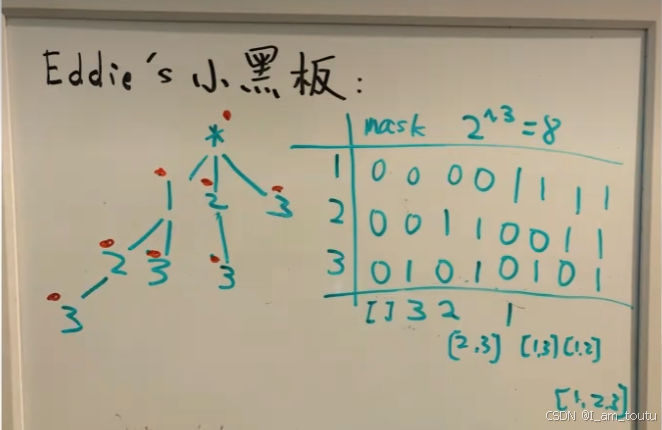 Eddie's 小黑板:
mask 2^3=8
*
1 2 3
2 3 3
3
1 0 0 0 0 1 1 1 1
2 0 0 1 1 0 0 1 1
3 0 1 0 1 0 1 0 1
[] 3 2 1
[2,3] [1,3] [1,2]
[1,2,3]
CSDN @I_am_toutu